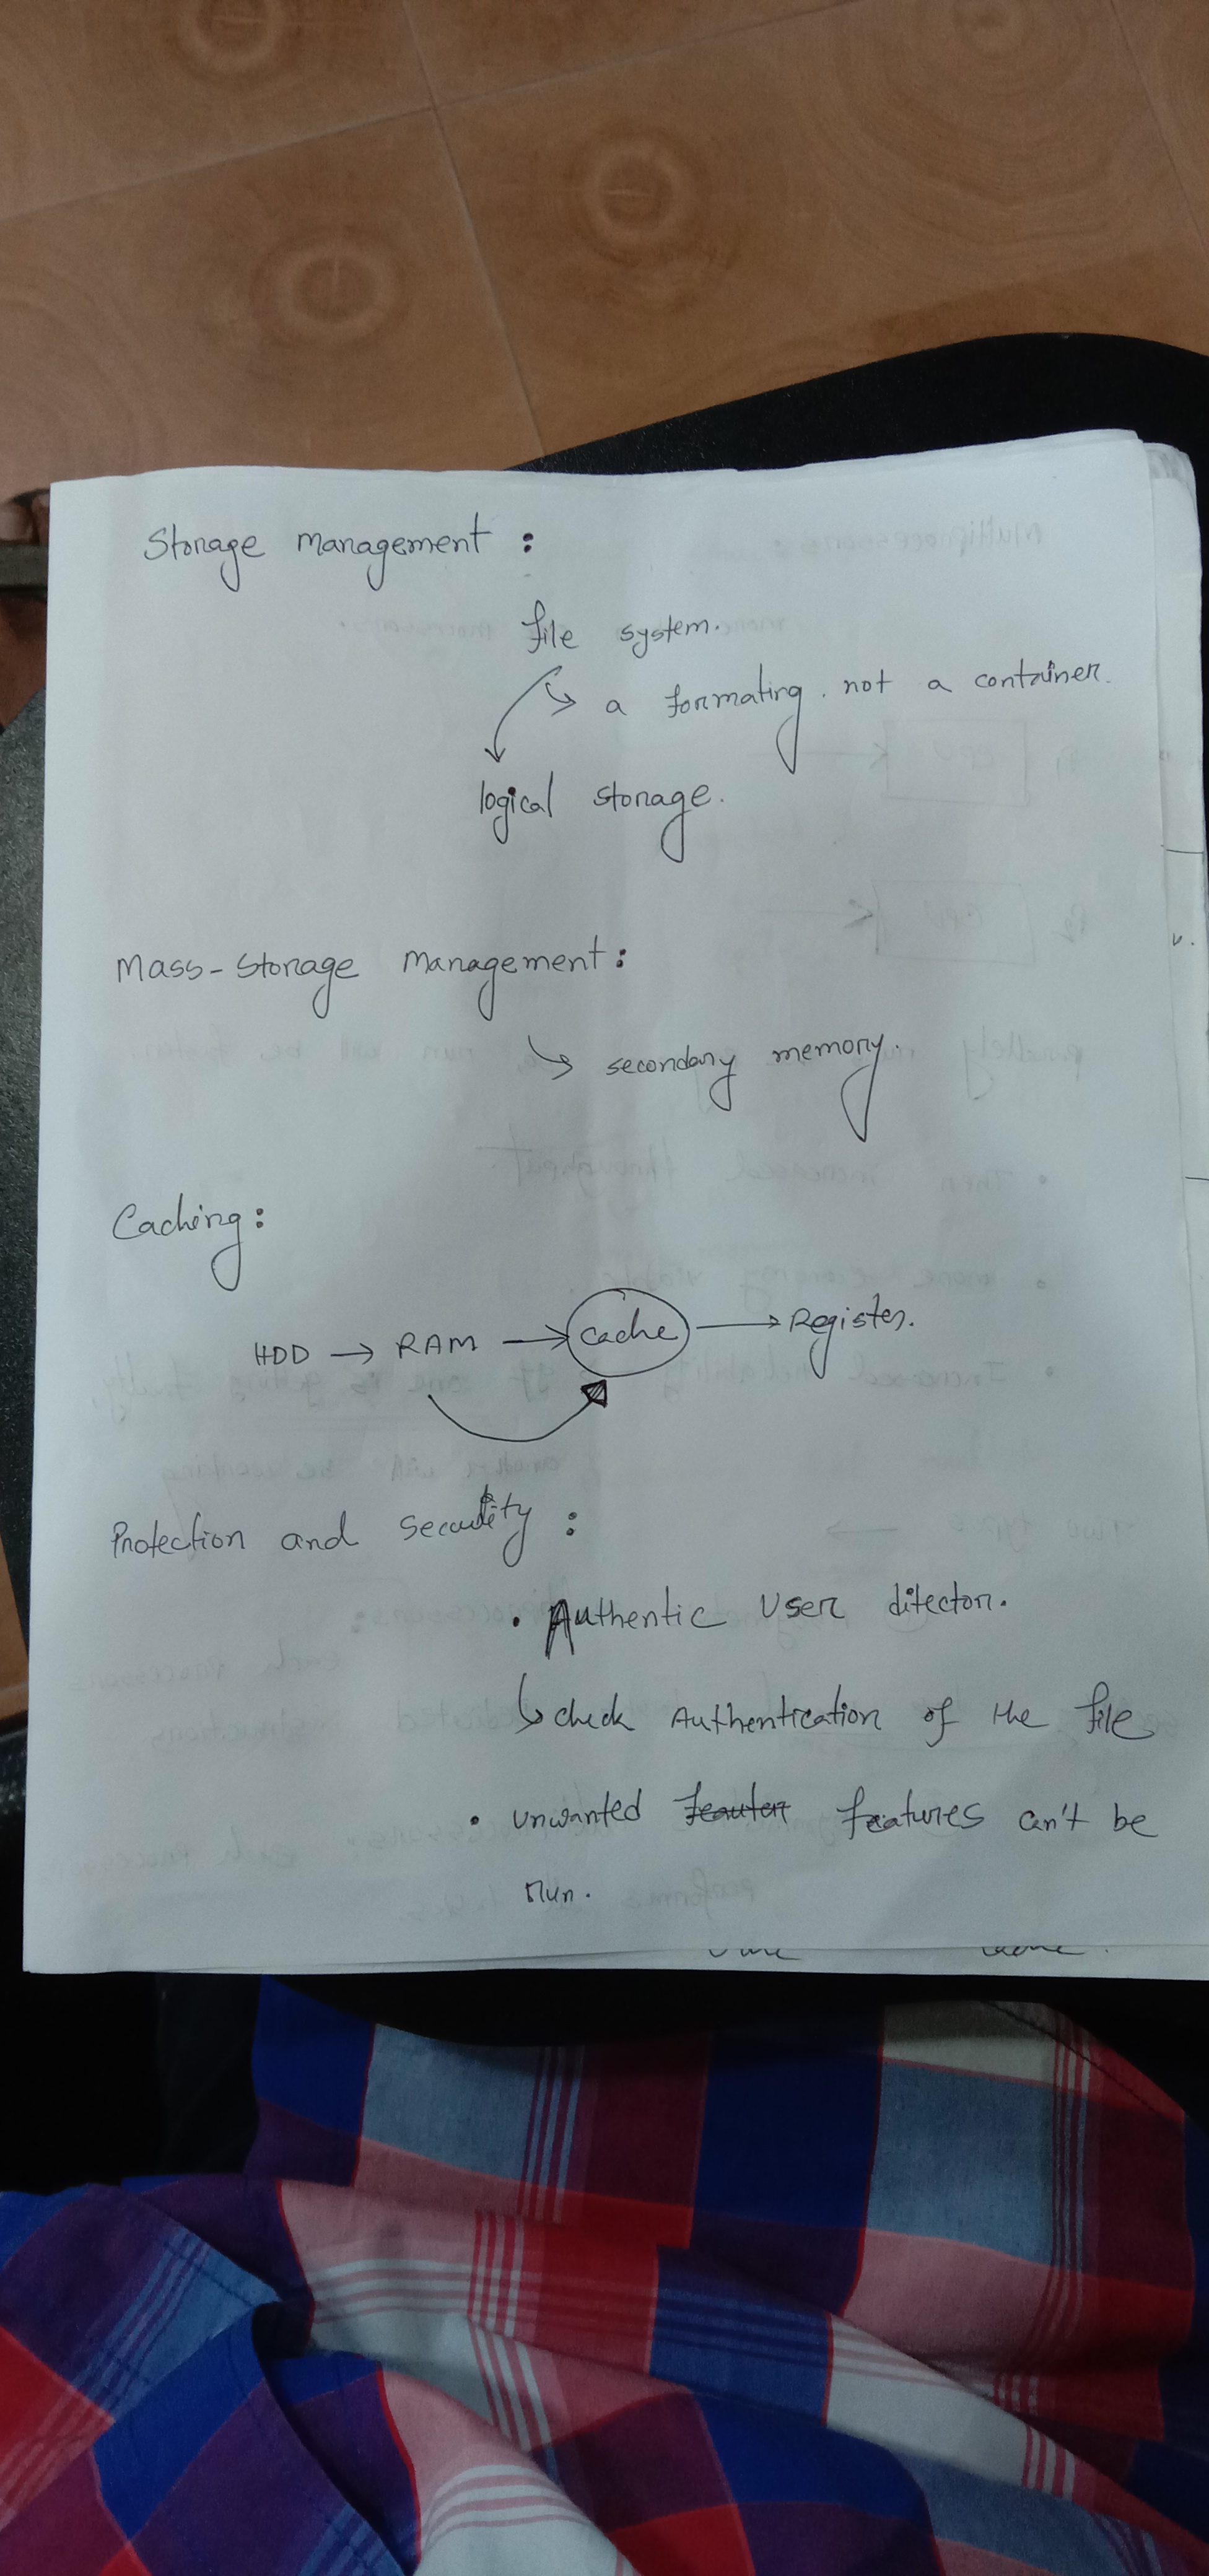 Storage management :
file system.
↳ a formating. not a container.
logical storage.
Mass-Storage Management :
↳ secondary memory.
Caching :
HDD → RAM → Cache → Register.
Protection and security :
• Authentic User ditector.
↳ check Authentication of the file
• unwanted features can't be
run.